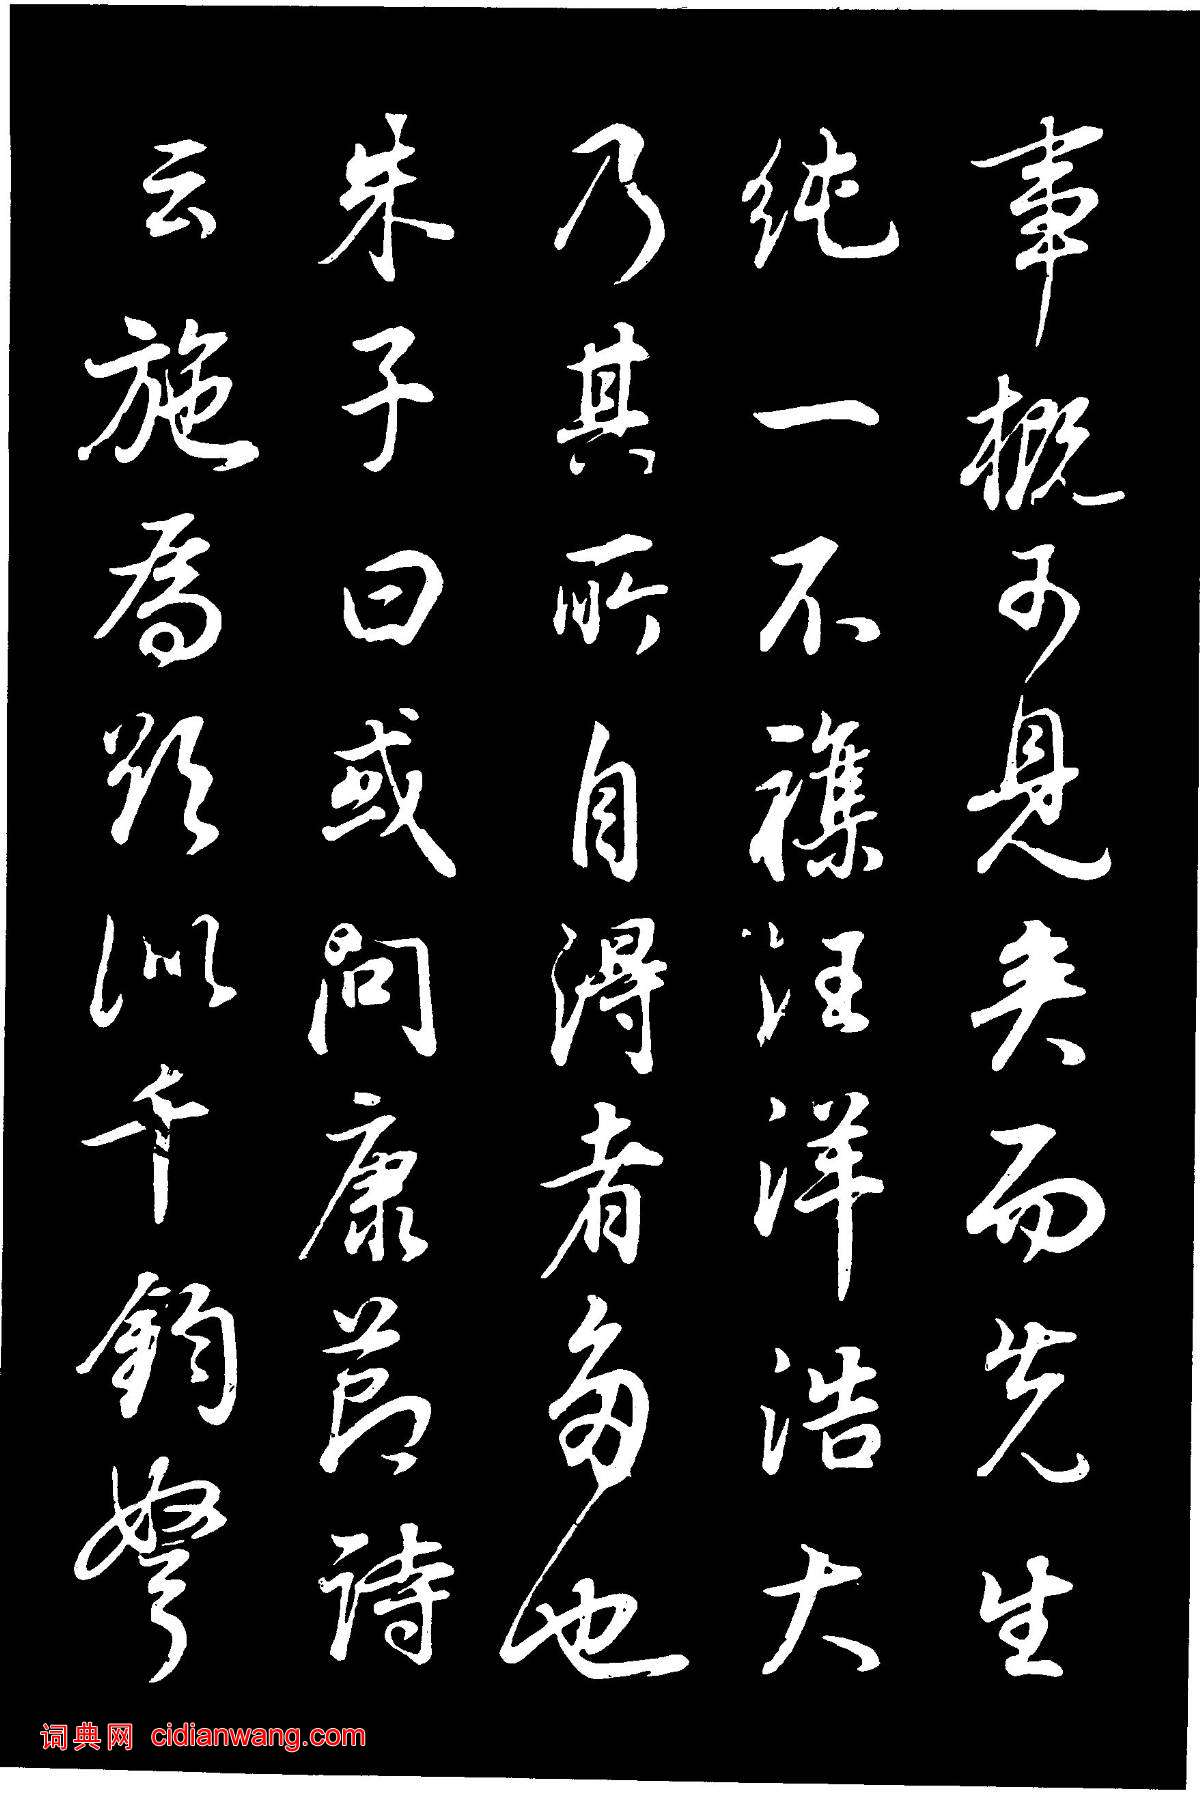 事概可見矣而先生
純一不襍汪洋浩大
乃其所自得者多也
朱子曰或問康節詩
云施為欲似千鈞弩
词典网 cidianwang.com